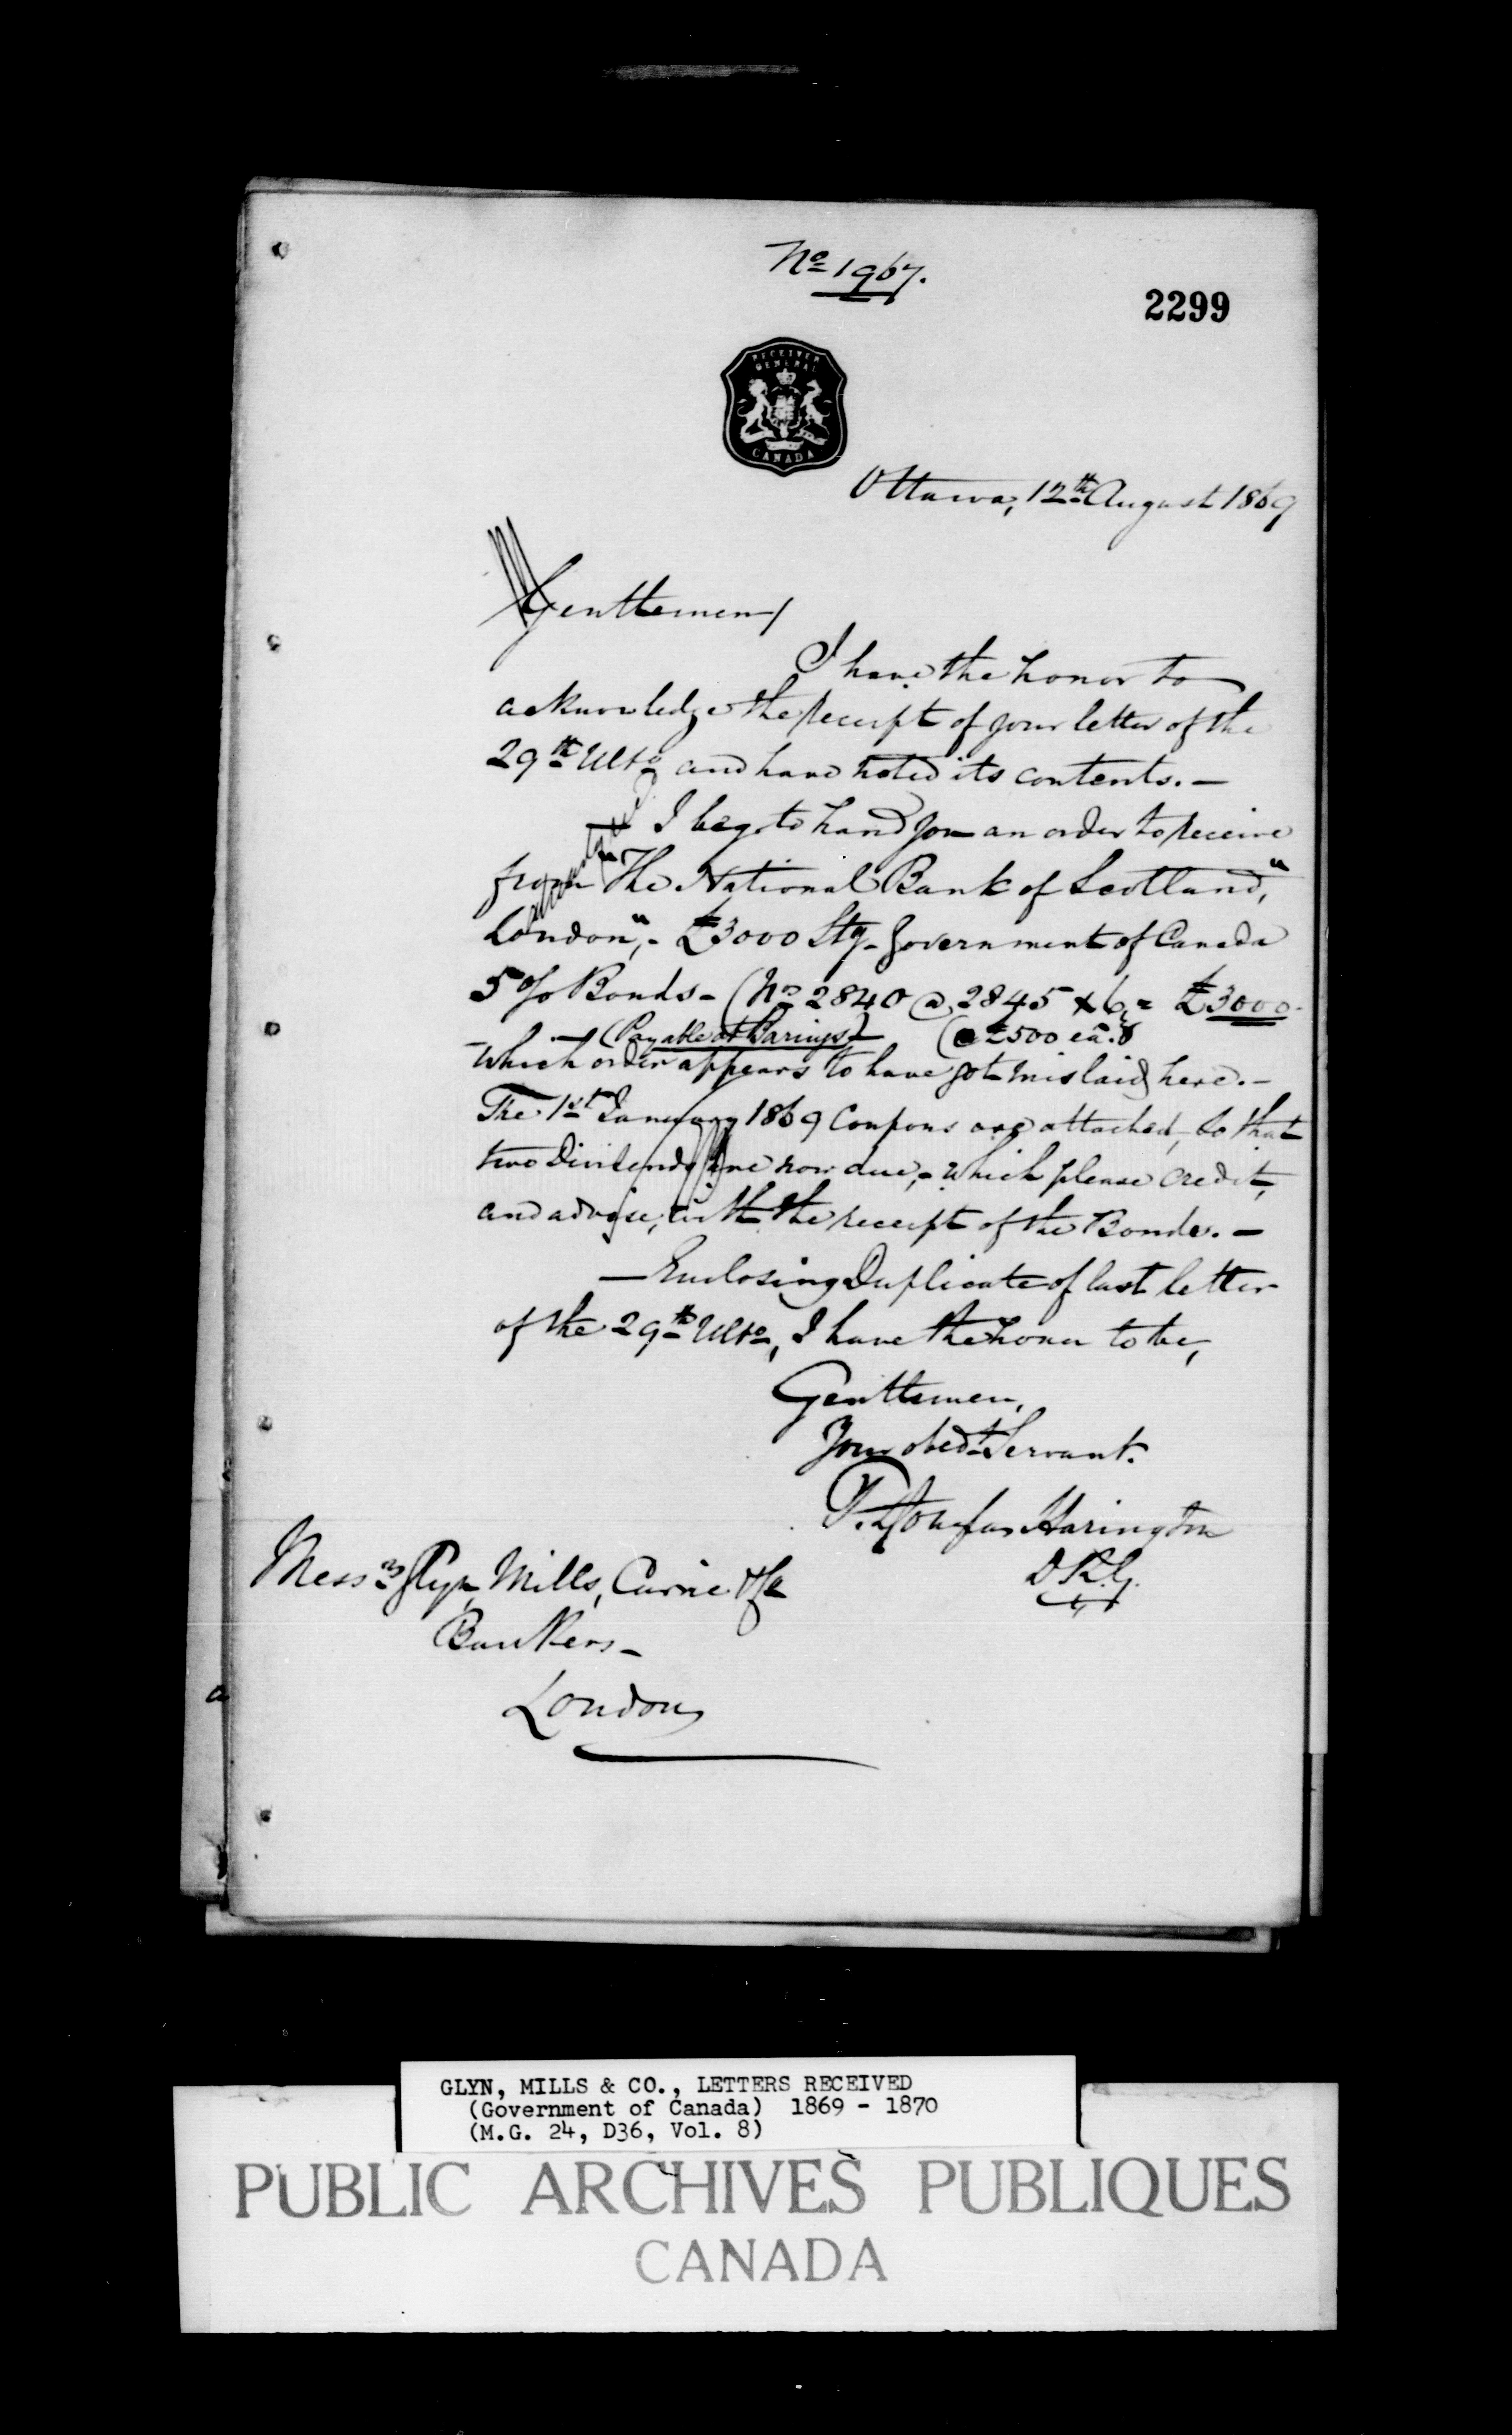 No 1967.
2299
RECEIVER
GENERAL
CANADA
Ottawa, 12th August 1869
Gentlemen,
I have the honor to
acknowledge the receipt of your letter of the
29th Ulto and have noted its contents. —
— I beg to hand you an order to receive
from "The National Bank of Scotland,"
London", - £3000 Stg - Government of Canada
5 % Bonds - (Nos 2840 @ 2845 x 6, = £3000 -
(Payable at Barings) (@ £500 ea.)
which order appears to have got mislaid here. —
The 1st January 1869 Coupons are attached, so that
two Dividends are now due, - which please credit,
and advise, with the receipt of the Bonds. —
— Enclosing Duplicate of last letter
of the 29th Ulto, I have the honor to be,
Gentlemen,
Your obedt Servant.
T. Douglas Harington
D.R.G.
Messrs Glyn, Mills, Currie & Co
Bankers -
London
GLYN, MILLS & CO., LETTERS RECEIVED
(Government of Canada) 1869 - 1870
(M.G. 24, D36, Vol. 8)
PUBLIC ARCHIVES PUBLIQUES
CANADA